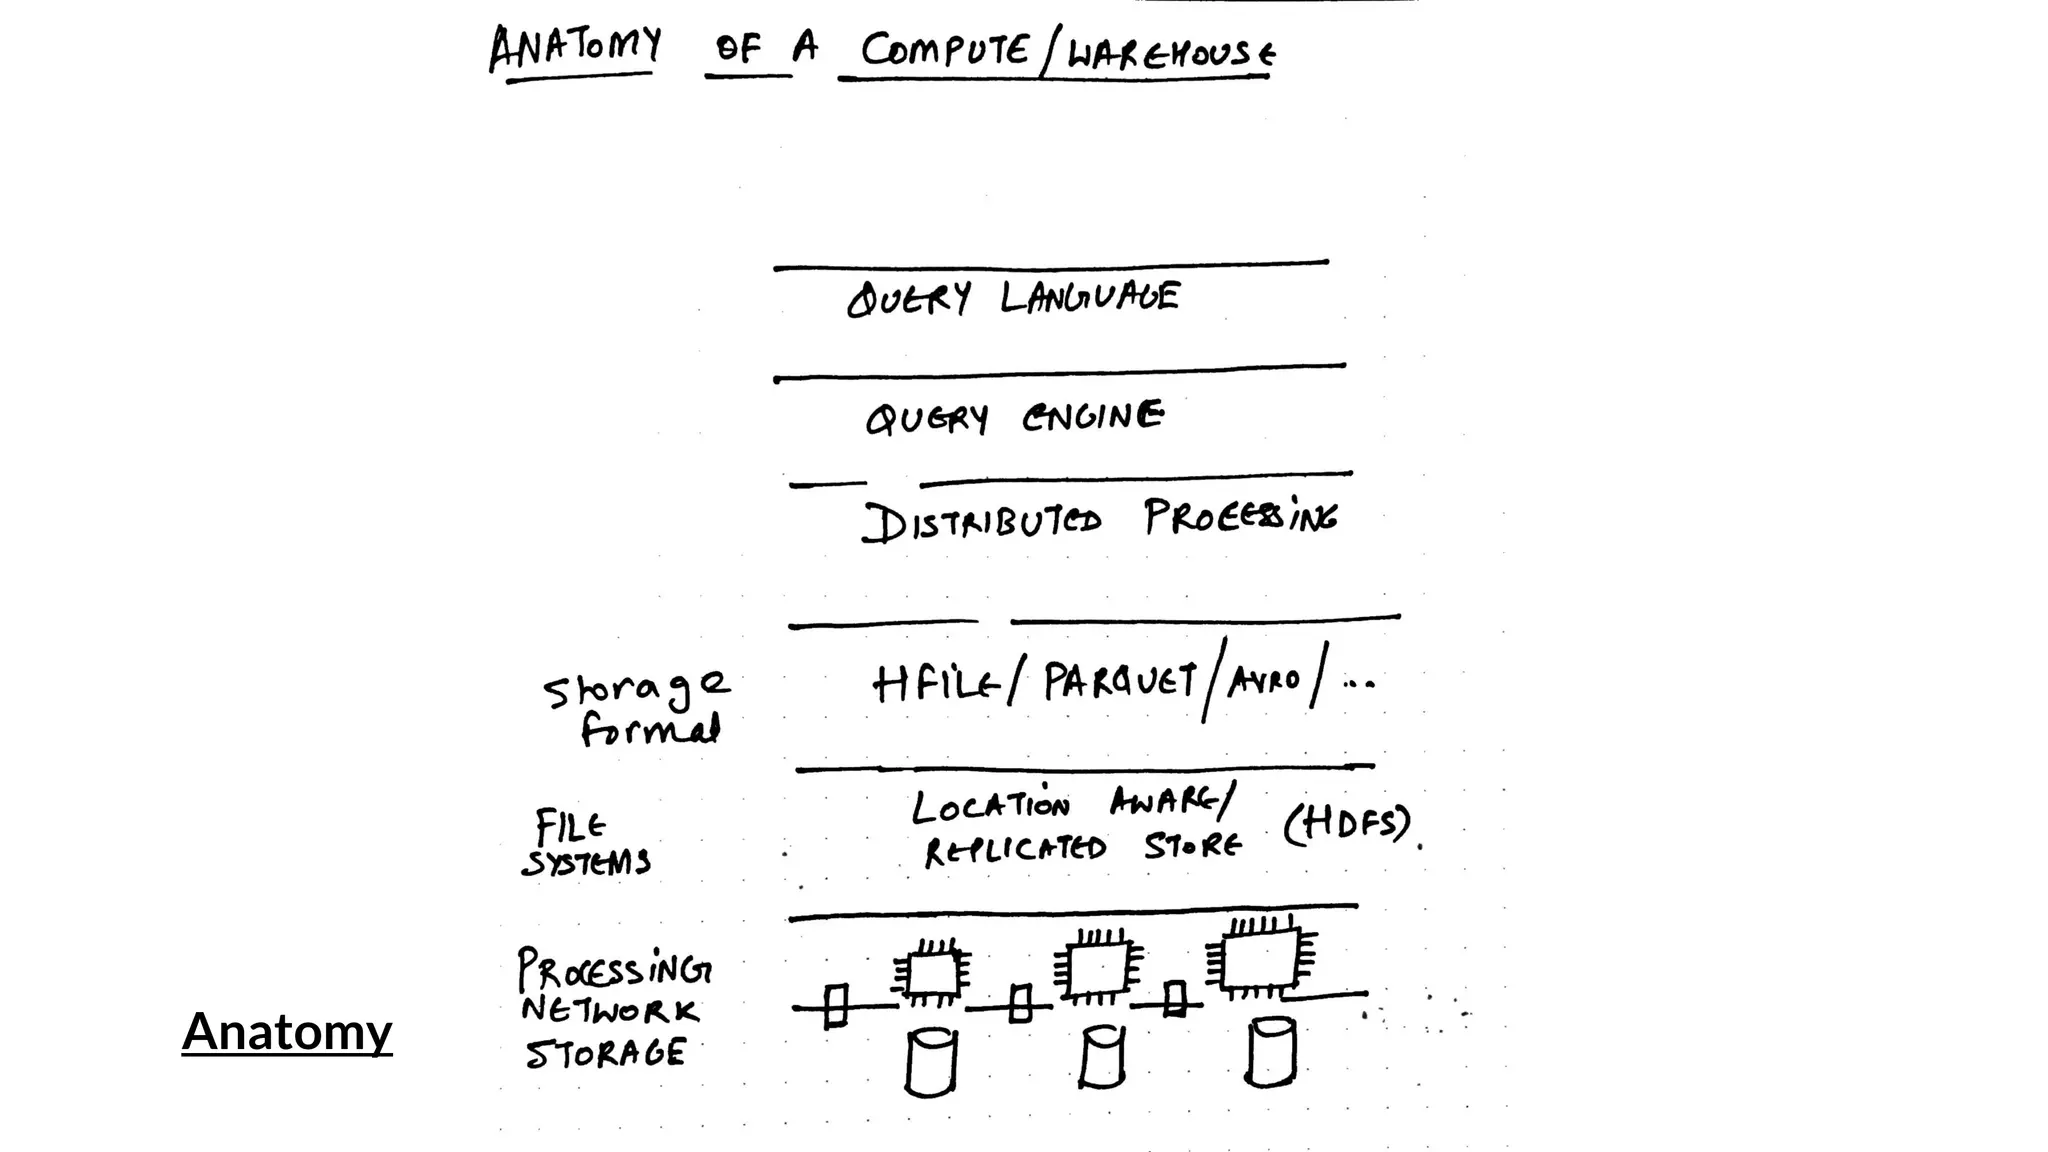 ANATOMY OF A COMPUTE/WAREHOUSE
QUERY LANGUAGE
QUERY ENGINE
DISTRIBUTED PROCESSING
Storage
format
HFILE/PARQUET/AVRO/...
FILE
SYSTEMS
LOCATION AWARE/
REPLICATED STORE (HDFS).
PROCESSING
NETWORK
STORAGE
Anatomy